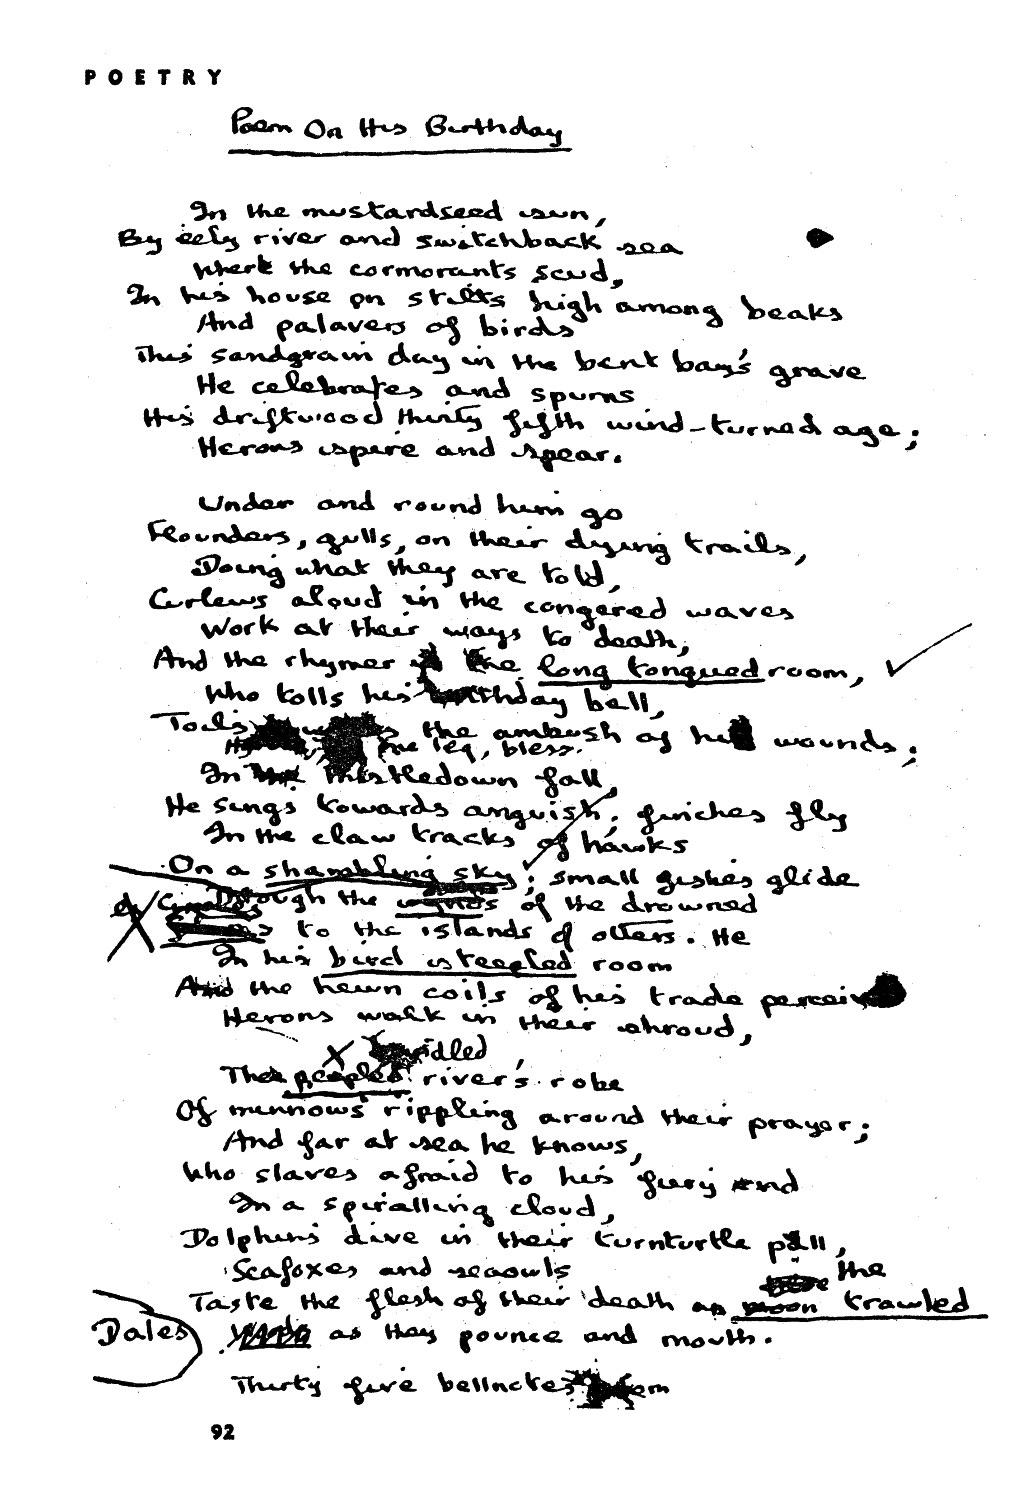 POETRY
Poem On His Birthday
In the mustardseed sun,
By eely river and switchback sea
Where the cormorants scud,
In his house on stilts high among beaks
And palavers of birds
This sandgrain day in the bent bay's grave
He celebrates and spurns
His driftwood thirty fifth wind-turned age;
Herons spire and spear.
Under and round him go
Flounders, gulls, on their dying trails,
Doing what they are told,
Curlews aloud in the congered waves
Work at their ways to death,
And the rhymer in the long tongued room,
Who tolls his birthday bell,
Toils the ambush of his wounds;
leg, bless.
In thistledown fall,
He sings towards anguish; finches fly
In the claw tracks of hawks
On a shambling sky; small fishes glide
Through the of the drowned
to the islands of otters. He
In his bird steepled room
And the hewn coils of his trade perceives
Herons walk in their shroud,
dled
The peopled river's robe
Of minnows rippling around their prayer;
And far at sea he knows,
Who slaves afraid to his fiery end
In a spiralling cloud,
Dolphins dive in their turnturtle pall,
Seafoxes and seaowls
the
Taste the flesh of their death as moon trawled
Dales as they pounce and mouth.
Thirty five bellnotes
92